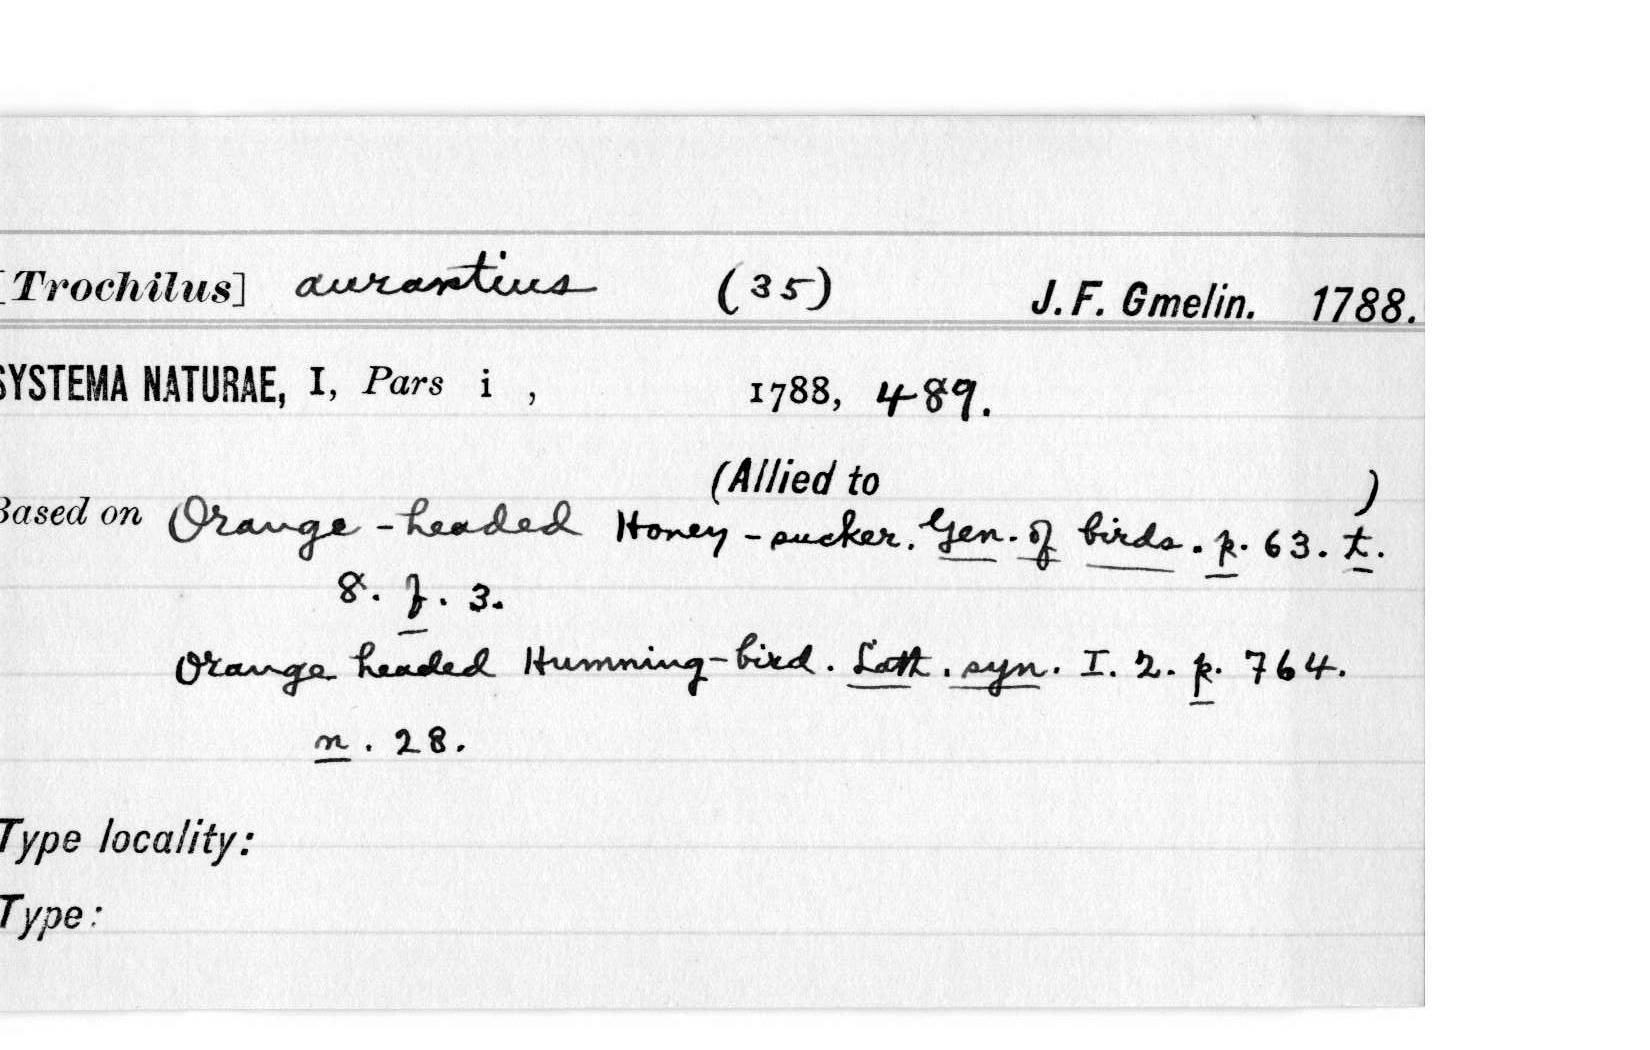 [Trochilus] aurantius (35) J. F. Gmelin. 1788.
SYSTEMA NATURAE, I, Pars i , 1788, 489.
(Allied to )
Based on Orange-headed Honey-sucker. Gen. of birds. p. 63. t.
8. f. 3.
Orange headed Humming-bird. Lath. syn. I. 2. p. 764.
n. 28.
Type locality:
Type: